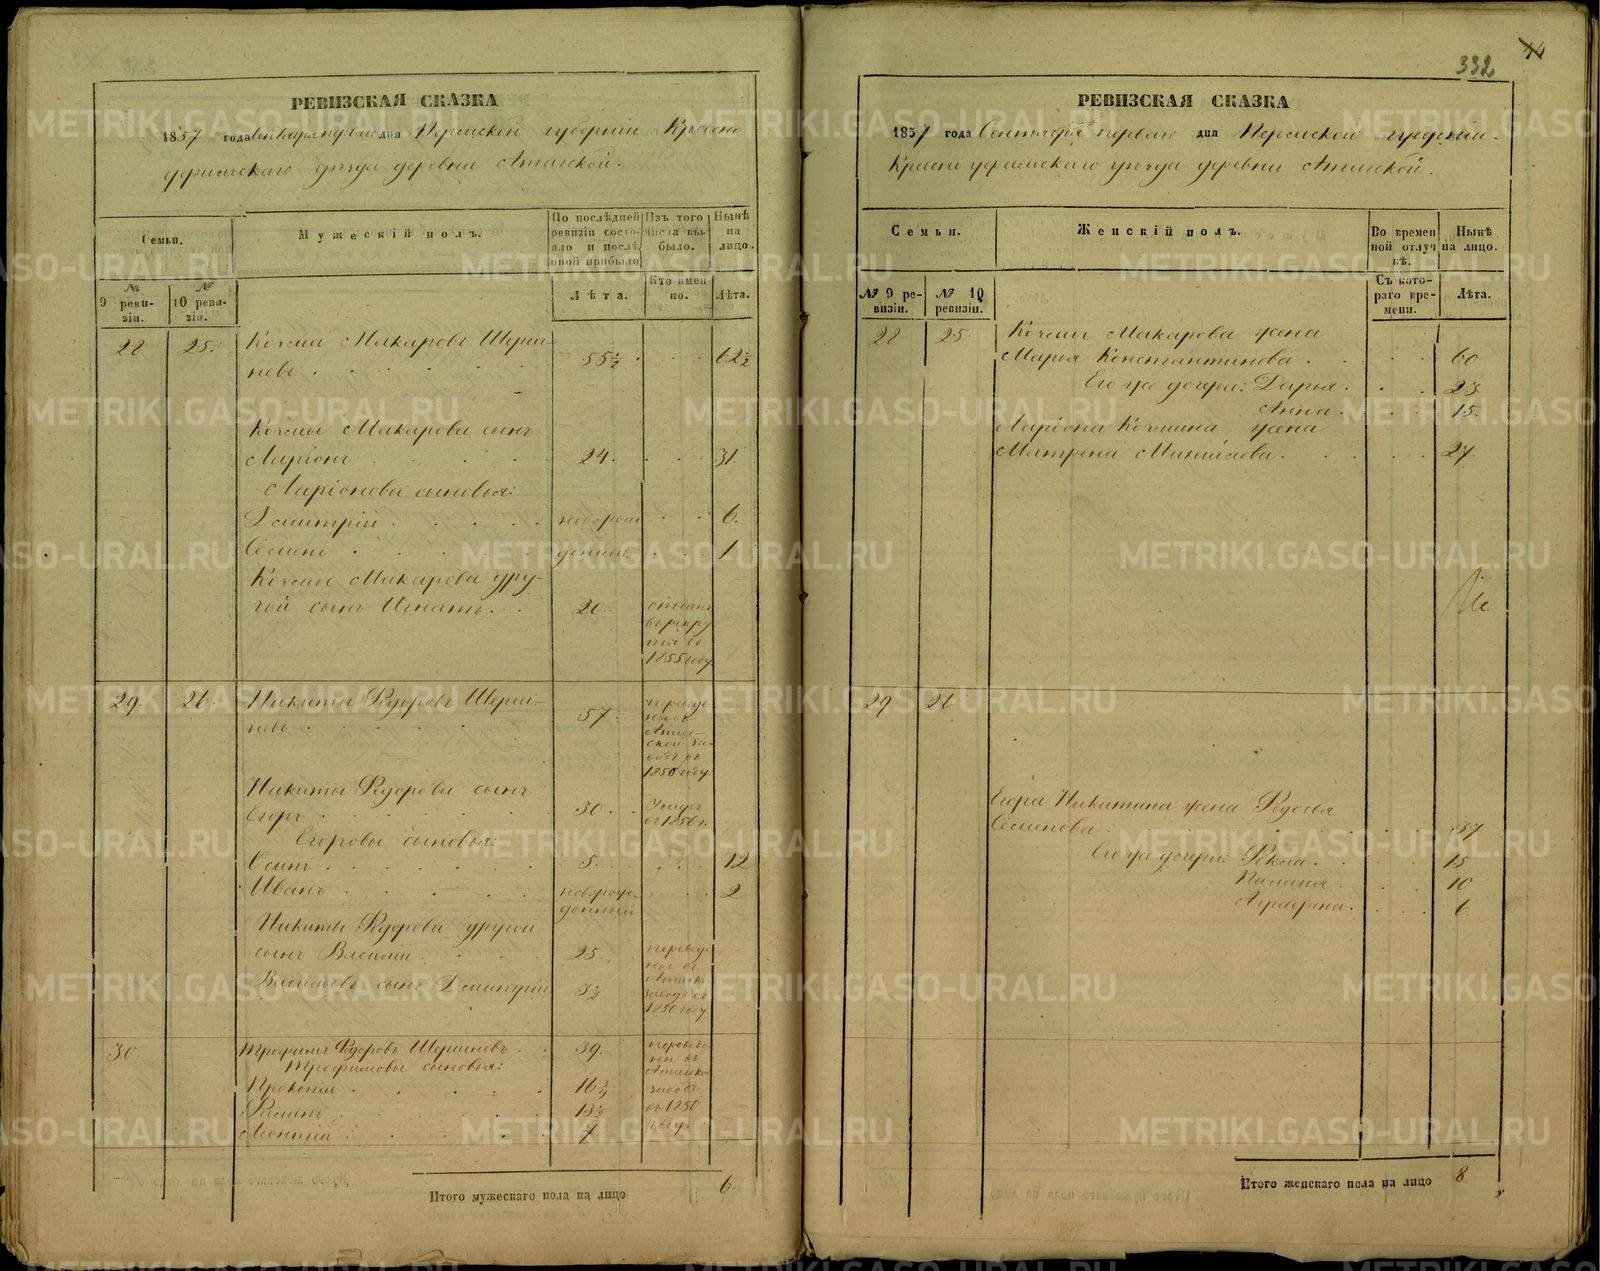 332
44
РЕВИЗСКАЯ СКАЗКА
1857 года Сентября первого дня Пермской губерніи Красно
уфимскаго уѣзда деревни Атигской.
Семьи.
Мужескій полъ.
По послѣдней ревизіи состояло и послѣ оной прибыло
Изъ того числа выбыло.
Нынѣ на лицо.
№ 9 ревизіи.
№ 10 ревизіи.
Лѣта.
Кто именно.
Лѣта.
28 25. Козма Макаровъ Шерши-
невъ 55½ 62½
Козмы Макарова сынъ
Ларіонъ 24. 31.
Ларіоновы сыновья:
Дмитрій новорож 6.
Семенъ денные 1
Козмы Макарова дру-
гой сынъ Игнатъ. 20 отданъ
въ рекру
ты въ
1855 году
29. 26 Никита Федоровъ Шерши-
невъ 57 переведе
въ
Атиг-
ской за-
водъ въ
1850 году.
Никиты Федорова сынъ
Егоръ 30 Умеръ
въ 1856 г.
Егоровы сыновья:
Осипъ 5. 12
Иванъ новорож-
денный 2
Никиты Федорова другой
сынъ Василій 25. переведе
ны въ
Васильевъ сынъ Дмитрій 3½ Атигск.
заводъ въ
1850 году
30. Трофимъ Федоровъ Шершневъ 39. переведе
ны въ
Трофимовы сыновья: Атигско
Прокопій 16¾ заводъ
Филипъ 13½ въ 1850
Леонтій 7 году.
Итого мужескаго пола на лицо 6.
РЕВИЗСКАЯ СКАЗКА
1857 года Сентября первого дня Пермской губерніи
Красноуфимскаго уѣзда деревни Атигской.
Семьи.
Женскій полъ.
Во временной отлучкѣ.
Нынѣ на лицо.
№ 9 ревизіи.
№ 10 ревизіи.
Съ котораго времени.
Лѣта.
28 25. Козмы Макарова жена
Марья Константинова 60
Его же дочери: Дарья. 23.
Анна. 15.
Ларіона Козмина жена
Матрена Михайлова. 27.
29 26
Егора Никитина жена Федосья
Семенова 37
Его же дочери: Фекла. 15
Палагея. 10
Аграфена. 6
Итого женскаго пола на лицо 8
METRIKI.GASO-URAL.RU